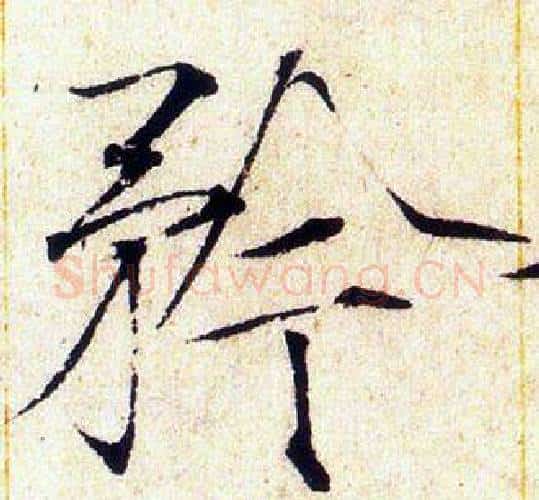 矜
Shufawang.CN